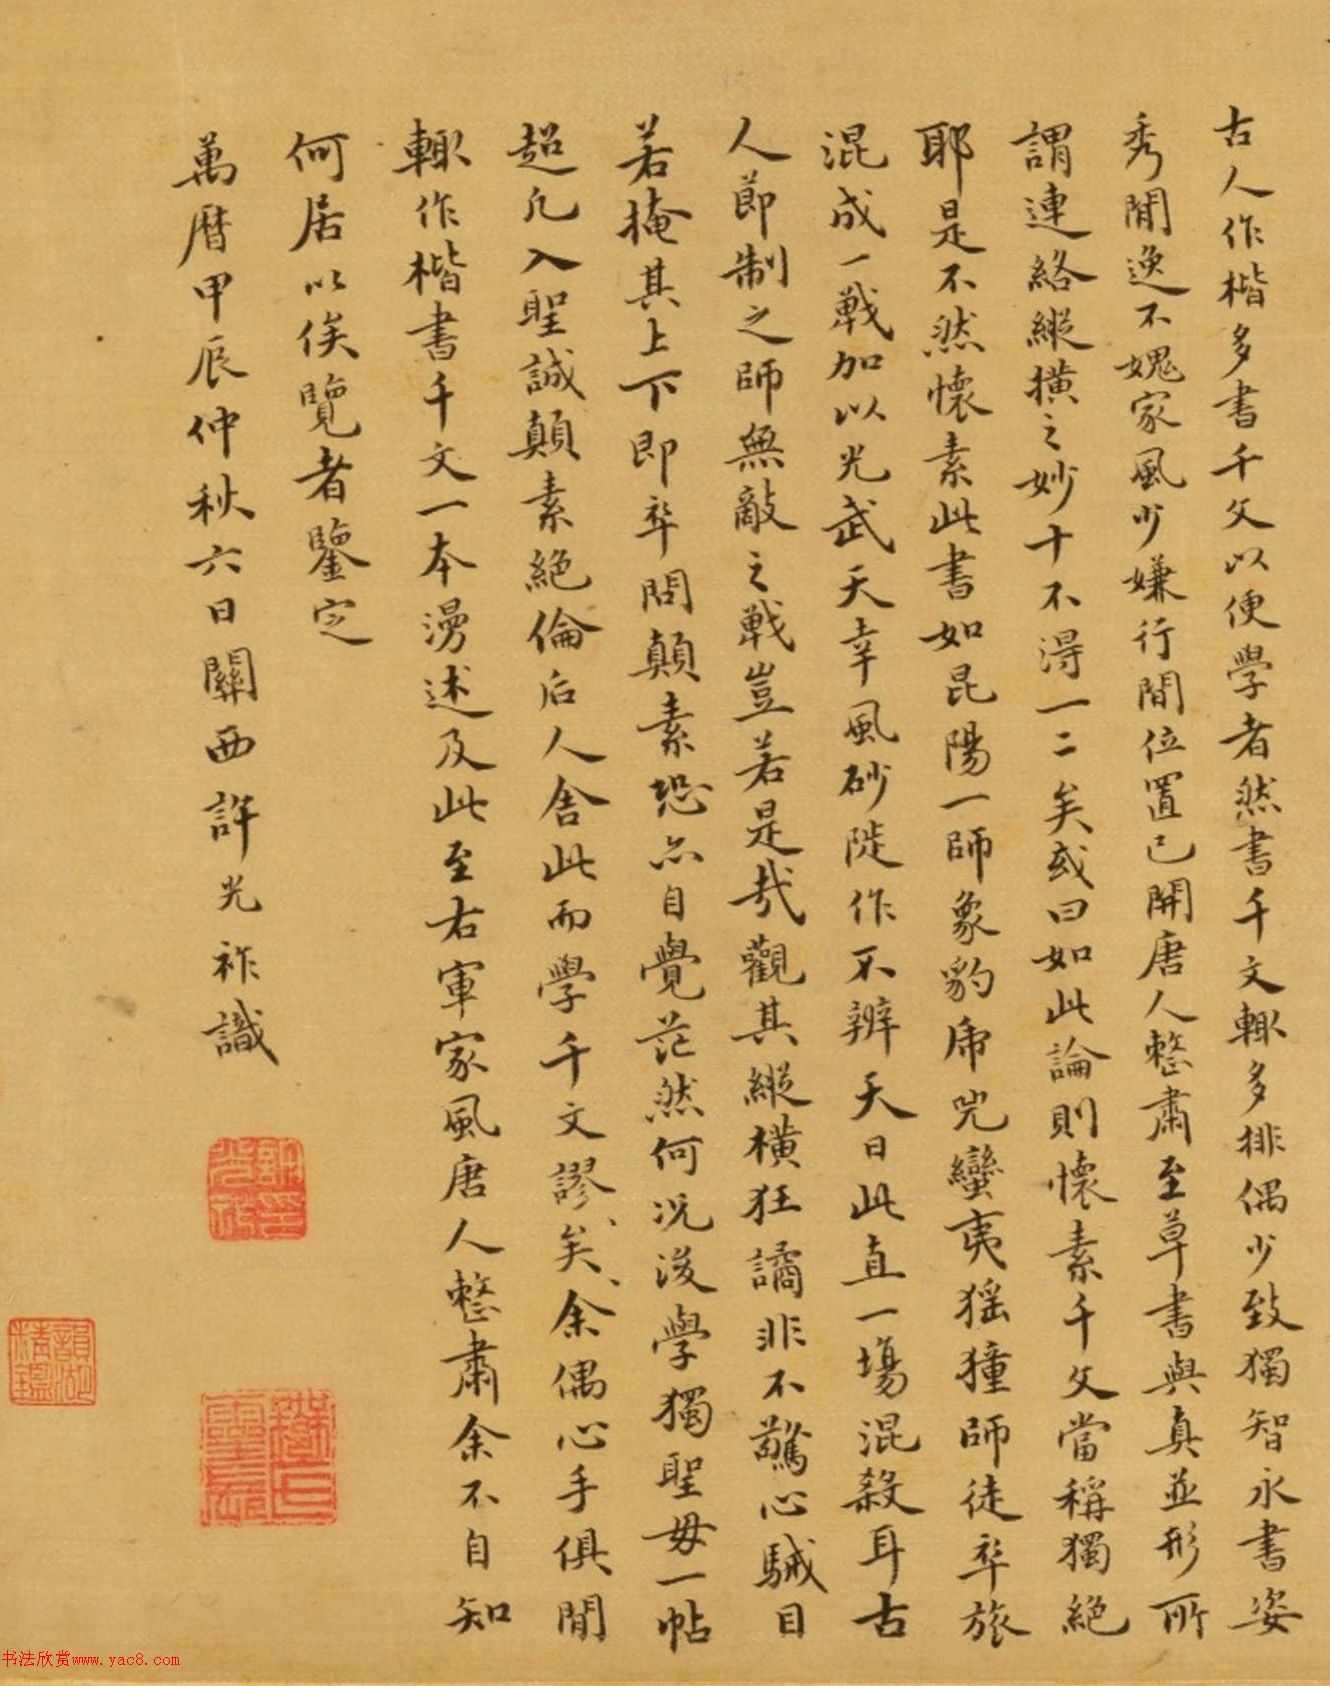 古人作楷多書千文以便學者然書千文輙多排偶少致獨智永書姿
秀閒逸不媿家風少嫌行間位置已開唐人整肅至草書與真並形所
謂連絡縱横之妙十不得一二矣或曰如此論則懷素千文當稱獨絕
耶是不然懷素此書如昆陽一師象豹虎兕蠻夷猺獞師徒卒旅
混成一戰加以光武天幸風砂陡作不辨天日此直一場混殺耳古
人節制之師無敵之戰豈若是哉觀其縱橫狂譎非不驚心駴目
若掩其上下即卒問顛素恐亦自覺茫然何况後學獨聖母一帖
超凡入聖誠顛素絕倫后人舍此而學千文謬矣余偶心手俱閒
輙作楷書千文一本漫述及此至右軍家風唐人整肅余不自知
何居以俟覽者鑒定
萬曆甲辰仲秋六日關西許光祚識
許光祚印
韻湖精鑑
书法欣赏www.yac8.com